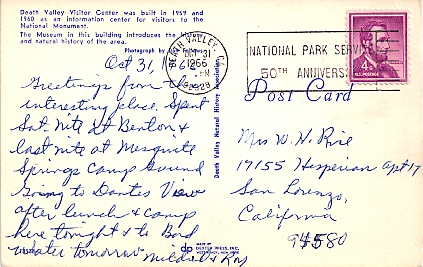 Death Valley Visitor Center was built in 1959 and
1960 as an information center for visitors to the
National Monument.
The Museum in this building introduces the
and natural history of the area.
Photograph by
Oct 31, 1966
Greetings from this
interesting place. Spent
Sat. Nite at Benton &
last nite at Mesquite
Springs Camp Ground
Going to Dantes View
after lunch & camp
here tonight & to Bad
water tomorrow
Mildred & Roy
Death Valley Natural History Association
MADE BY
DEXTER PRESS, INC.
WEST NYACK, NEW YORK
dp
DEATH VALLEY, CA
OCT 31
PM
1966
92328
NATIONAL PARK SERVICE
50TH ANNIVERS
4¢
U.S. POSTAGE
Post Card
Mrs W. H. Rise
17155 Hesperian Apt 17
San Lorenzo,
California
94580